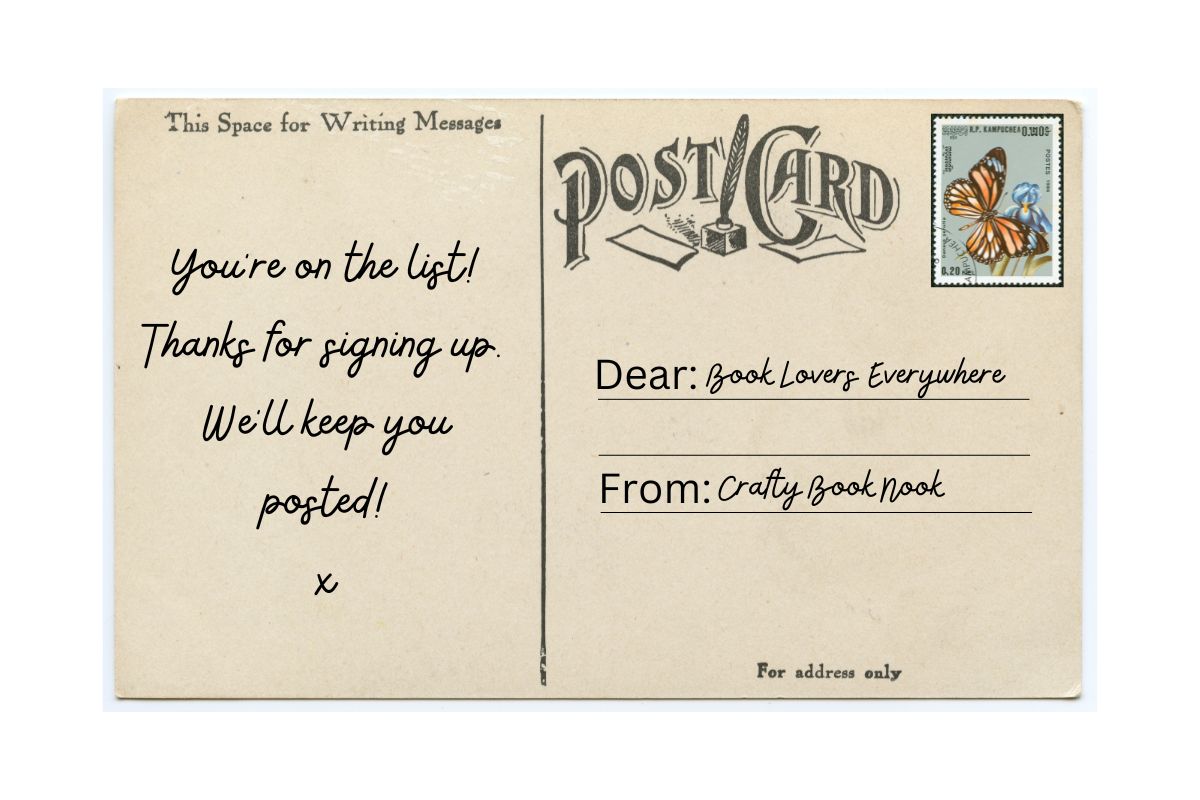 This Space for Writing Messages
You're on the list!
Thanks for signing up.
We'll keep you
posted!
x
POST CARD
R.P. KAMPUCHEA
POSTES 1986
0,20
Dear: Book Lovers Everywhere
From: Crafty Book Nook
For address only